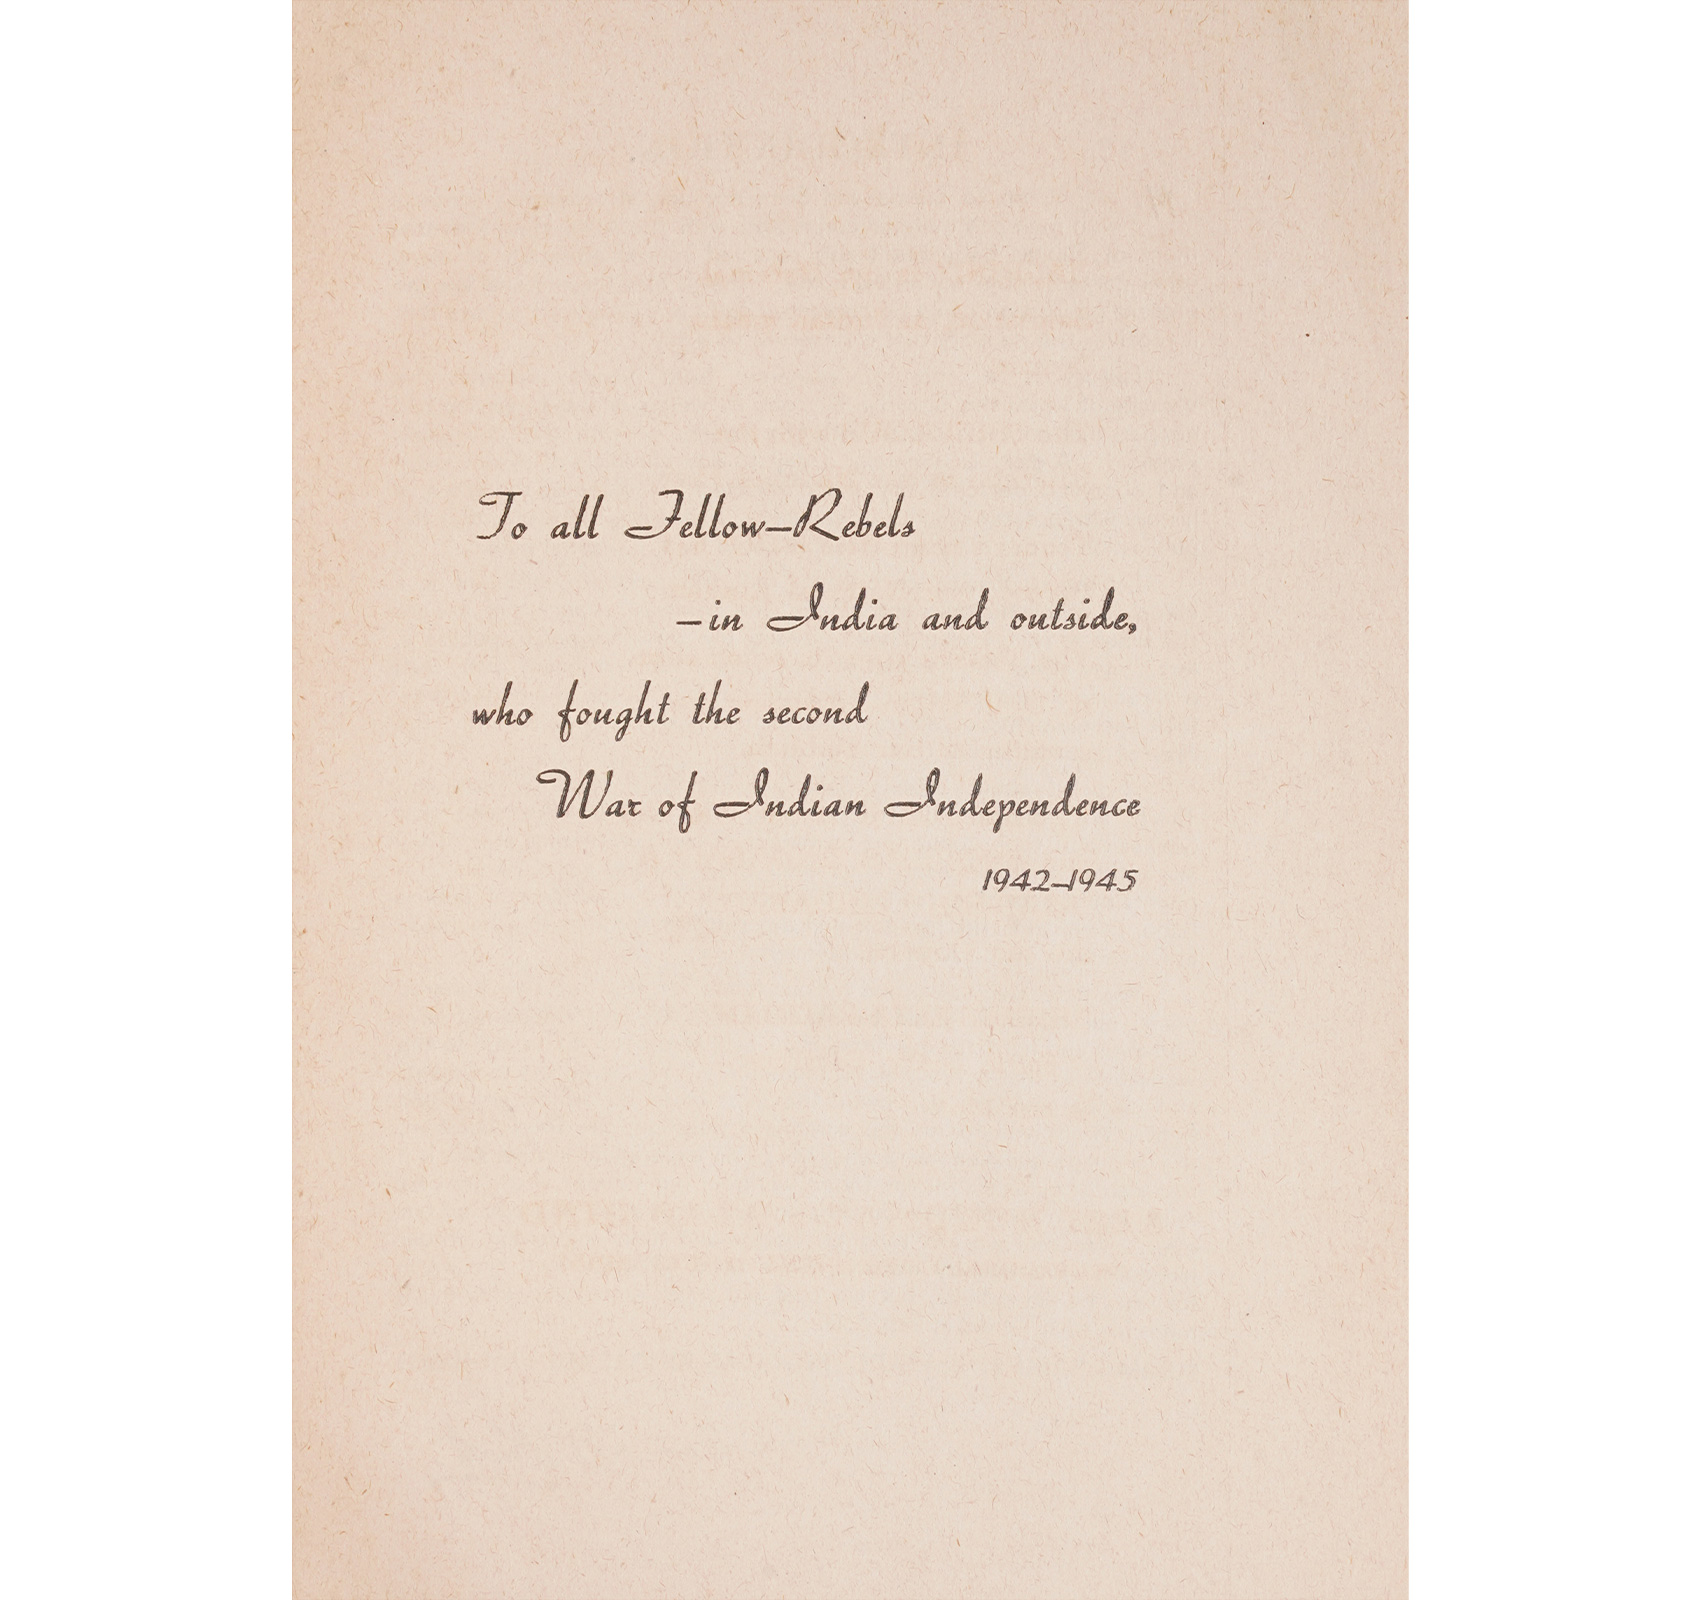 To all Fellow–Rebels
–in India and outside,
who fought the second
War of Indian Independence
1942–1945